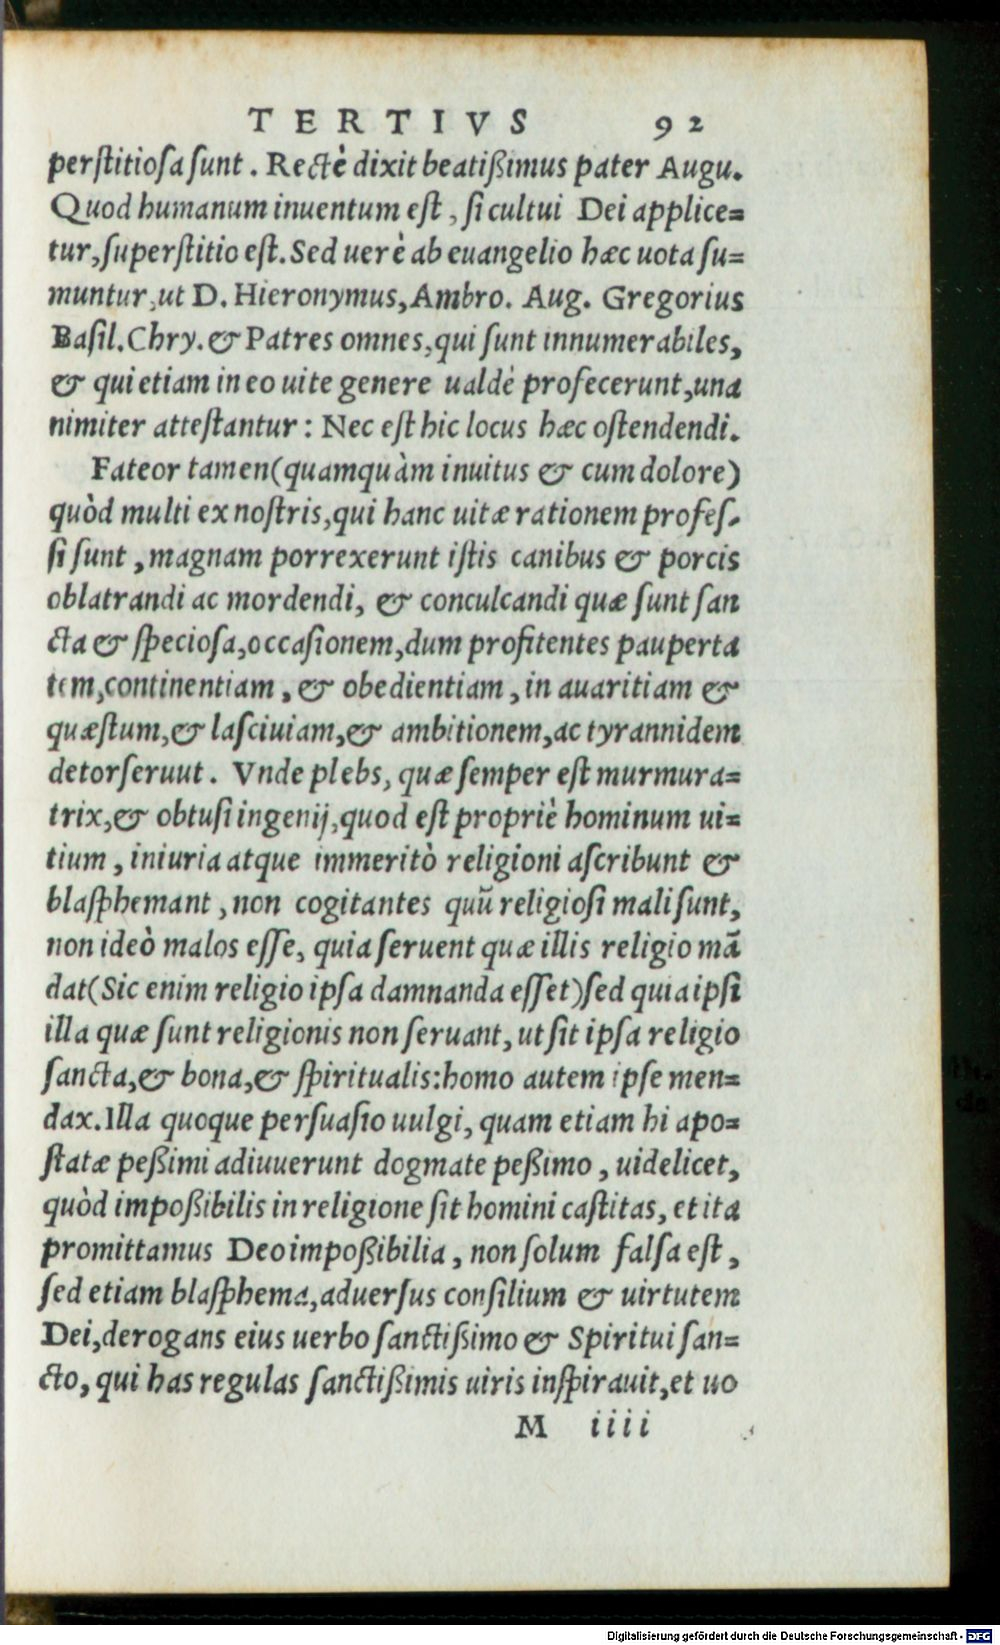 TERTIVS 92
perſtitioſa ſunt. Rectè dixit beatißimus pater Augu.
Quod humanum inuentum eſt, ſi cultui Dei applice=
tur, ſuperſtitio eſt. Sed uerè ab euangelio hæc uota ſu=
muntur, ut D. Hieronymus, Ambro. Aug. Gregorius
Baſil. Chry. & Patres omnes, qui ſunt innumerabiles,
& qui etiam in eo uite genere ualdè profecerunt, una
nimiter atteſtantur: Nec eſt hic locus hæc oſtendendi.
Fateor tamen (quamquàm inuitus & cum dolore)
quòd multi ex noſtris, qui hanc uitæ rationem profeſ-
ſi ſunt, magnam porrexerunt iſtis canibus & porcis
oblatrandi ac mordendi, & conculcandi quæ ſunt ſan
cta & ſpecioſa, occaſionem, dum profitentes pauperta
tem, continentiam, & obedientiam, in auaritiam &
quæſtum, & laſciuiam, & ambitionem, ac tyrannidem
detorſeruut. Vnde plebs, quæ ſemper eſt murmura=
trix, & obtuſi ingenij, quod eſt propriè hominum ui=
tium, iniuria atque immeritò religioni aſcribunt &
blaſphemant, non cogitantes quū religioſi mali ſunt,
non ideò malos eſſe, quia ſeruent quæ illis religio mā
dat (Sic enim religio ipſa damnanda eſſet) ſed quia ipſi
illa quæ ſunt religionis non ſeruant, ut ſit ipſa religio
ſancta, & bona, & ſpiritualis: homo autem ipſe men=
dax. Illa quoque perſuaſio uulgi, quam etiam hi apo=
ſtatæ peßimi adiuuerunt dogmate peßimo, uidelicet,
quòd impoßibilis in religione ſit homini caſtitas, et ita
promittamus Deo impoßibilia, non ſolum falſa eſt,
ſed etiam blaſphema, aduerſus conſilium & uirtutem
Dei, derogans eius uerbo ſanctißimo & Spiritui ſan=
cto, qui has regulas ſanctißimis uiris inſpirauit, et uo
M iiii
Digitalisierung gefördert durch die Deutsche Forschungsgemeinschaft - DFG